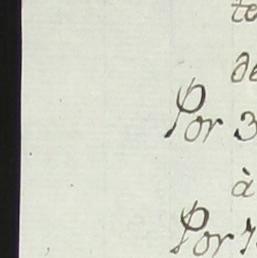 te
de
Por 3
à
Por 7